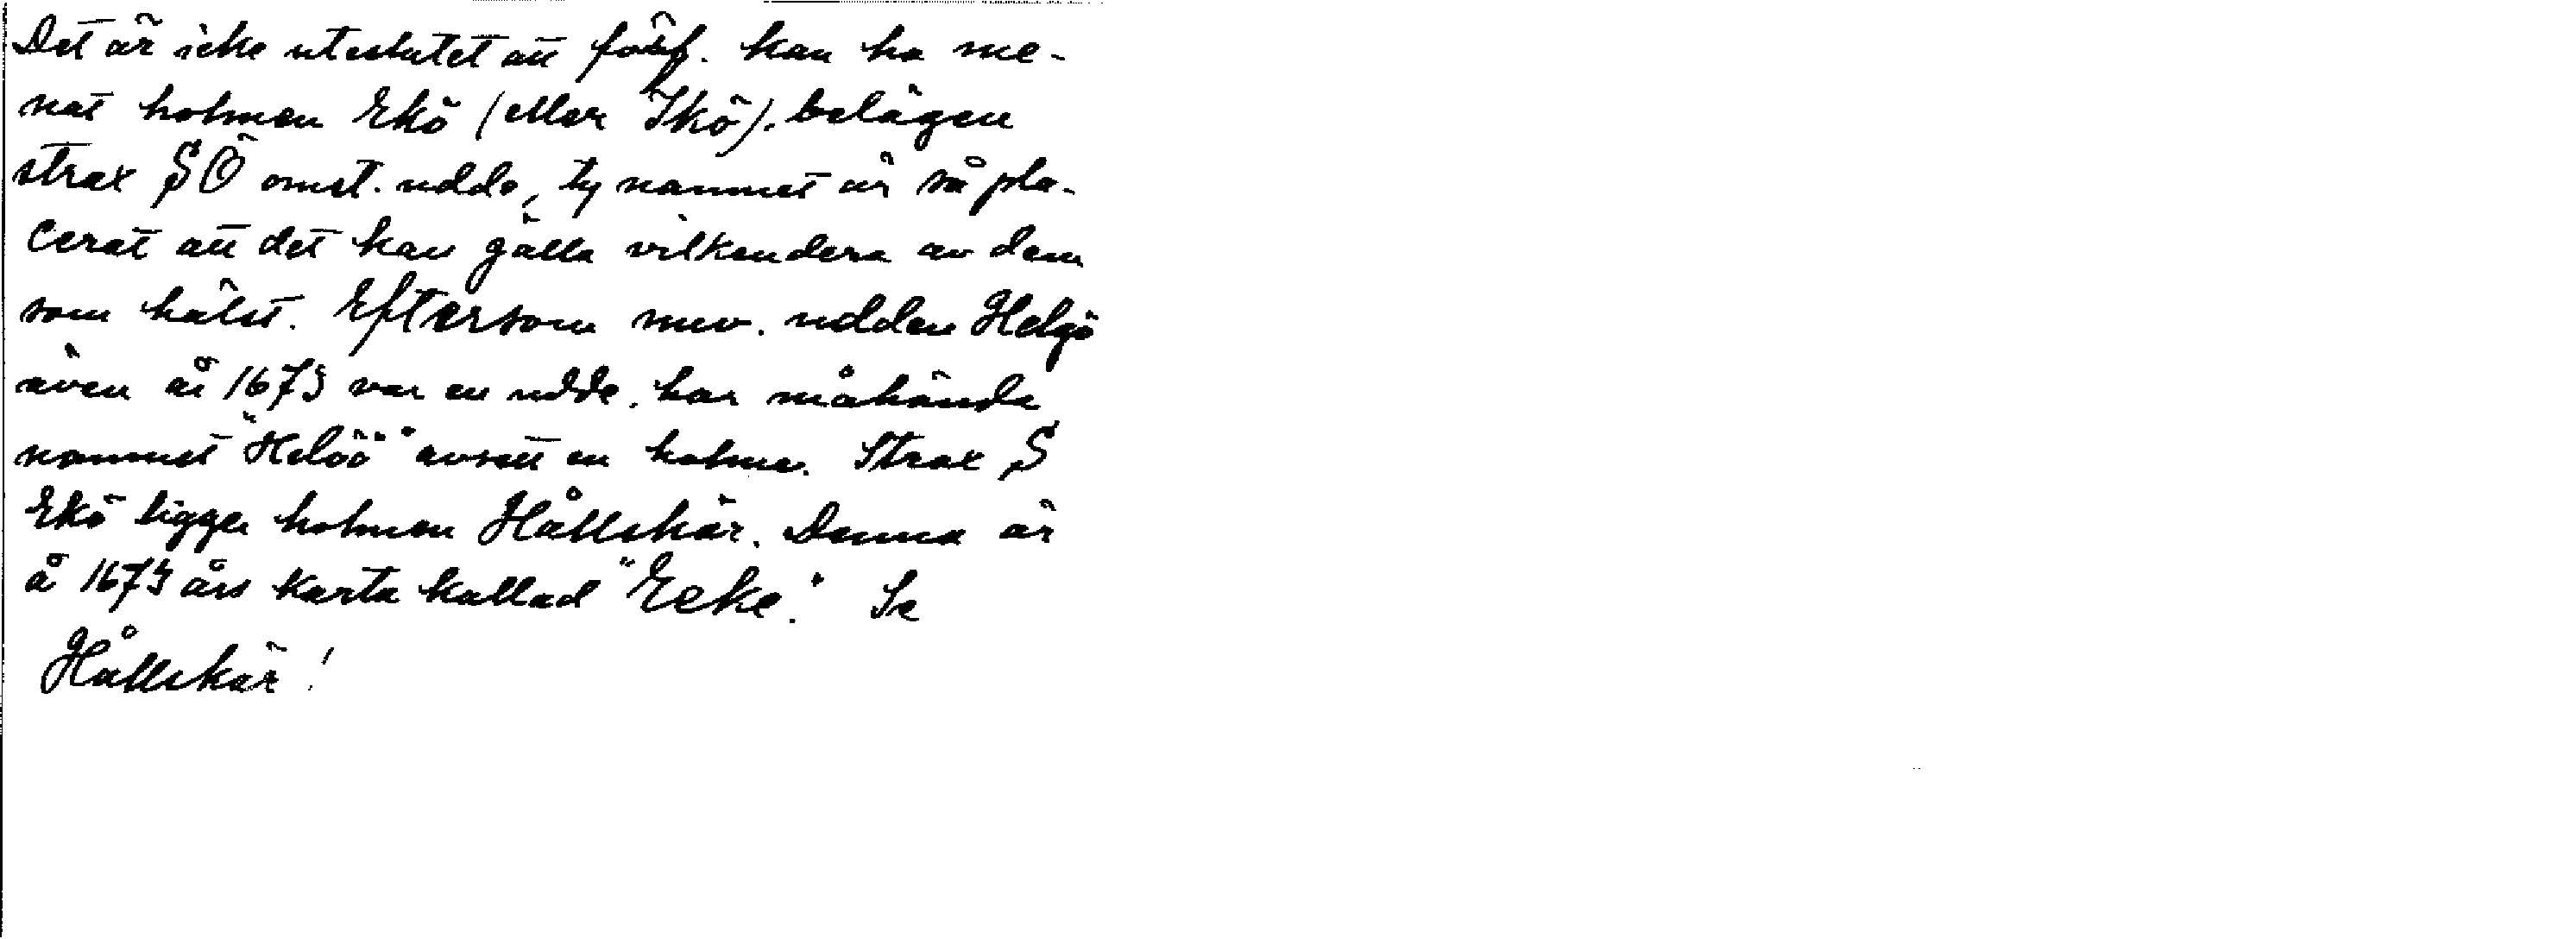 Det är icke uteslutet att förf. kan ha me-
nat holmen Ekö (eller Ikö), belägen
strax SÖ omst. udde, ty namnet är så pla-
cerat att det kan gälla vilkendera av dem
som hälst. Eftersom nuv. udden Helgö
även år 1673 var en udde, har måhända
namnet "Helöö" avsett en holme. Strax S
Ekö ligger holmen Hållskär. Denna är
å 1673 års karta kallad "Eeke". Se
Hållskär!